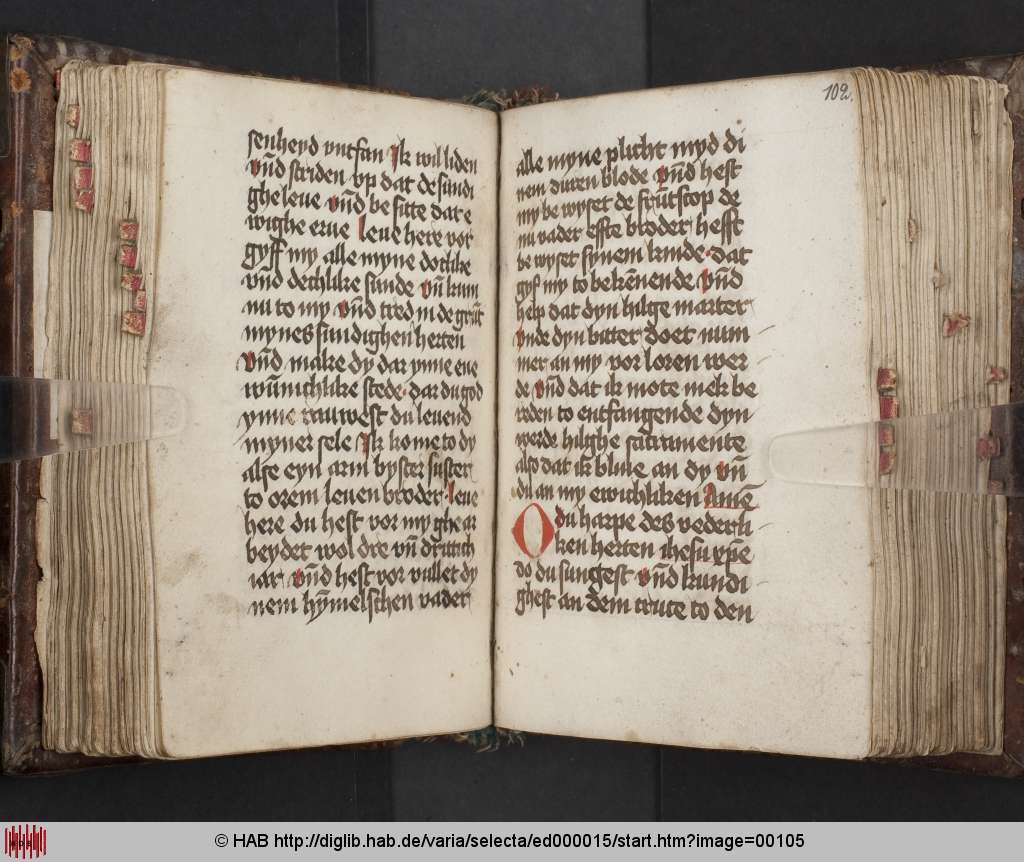 senheyd vntfan Jk wil liden
vn̄d striden vp dat de sundi
ghe leue vn̄d be sitte dat e
wighe erue leue here vor
gyff my alle myne dotlike
vn̄d dechlike sunde vn̄ kum
nu to my vn̄d tred in de grūt
mynes sundighen herten
vn̄d make dy dar ynne ene
wūnichlike stede · dar du god
ynne rauwest du leuend
myner sele Jk kome to dy
alse eyn arm byster suster
to orem leuen broder · leue
here du hest vor my ghe ar
beydet wol dre vn̄ dritich
iar vn̄d hest vor vullet dy
nem hȳmelschen vader
102.
alle myne plicht myd di
nem duren blode vn̄d hest
my be wyset de
nu vader efte broder hefft
be wyset synem kinde · dat
gyf my to bekēnende vn̄d
help dat dyn hilge marter
vnde dyn bitter doet num
mer an my vor loren wer
de vn̄d dat ik mote mek be
reden to entfangende dyn
werde hilghe sacramente
also dat ik bliue an dy vn̄
du an my ewichliken Amē
O du harpe des vederli
ken herten ihesu xp̄e
do du sungest vn̄d kundi
ghest an dem cruce to den
© HAB http://diglib.hab.de/varia/selecta/ed000015/start.htm?image=00105